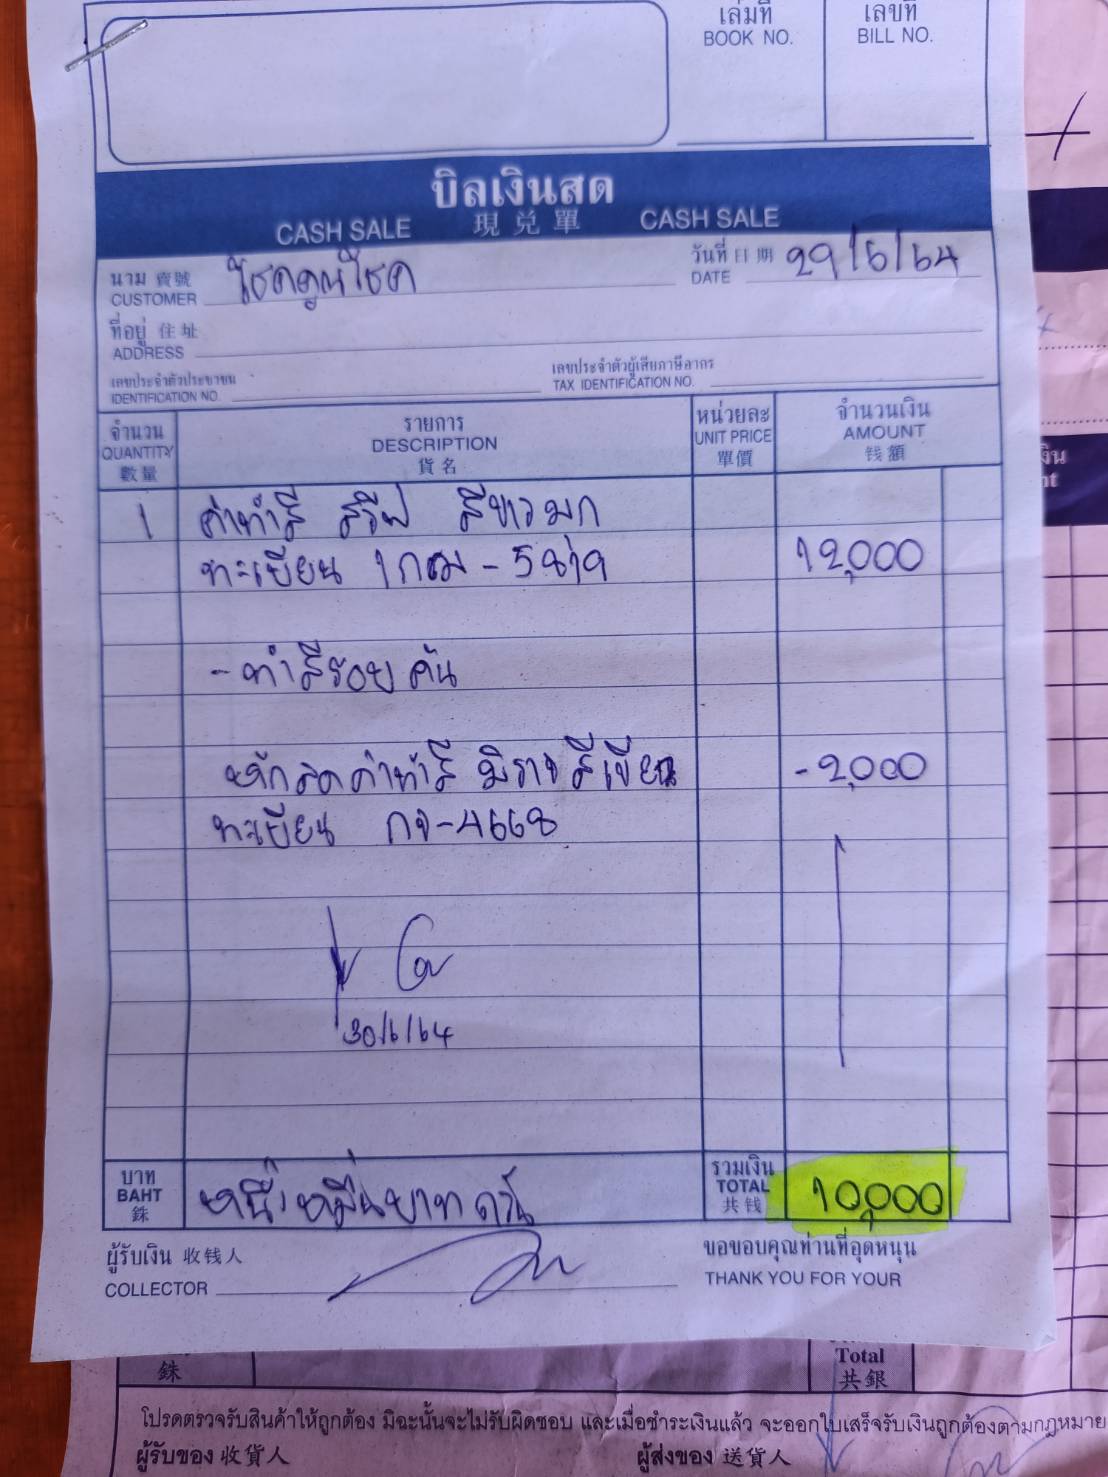 เล่มที่
BOOK NO.
เลขที่
BILL NO.
บิลเงินสด
CASH SALE 現兑單 CASH SALE
นาม 賣號
CUSTOMER โชคคูณโชค
วันที่ 日期
DATE 29/6/64
ที่อยู่ 住址
ADDRESS
เลขประจำตัวประชาชน
IDENTIFICATION NO.
เลขประจำตัวผู้เสียภาษีอากร
TAX IDENTIFICATION NO.
จำนวน
QUANTITY
數量
รายการ
DESCRIPTION
貨名
หน่วยละ
UNIT PRICE
單價
จำนวนเงิน
AMOUNT
钱額
1 ค่าทำสี สวีฟ สีขาวมุก
ทะเบียน 1กฌ-5819 12,000
-ทำสีรอบคัน
หักลดค่าทำสี มิราจ สีเขียว -2,000
ทะเบียน กง-4668
30/6/64
บาท
BAHT
銖
หนึ่งหมื่นบาทถ้วน
รวมเงิน
TOTAL
共钱
10,000
ผู้รับเงิน 收钱人
COLLECTOR
ขอขอบคุณท่านที่อุดหนุน
THANK YOU FOR YOUR
銖
Total
共銀
โปรดตรวจรับสินค้าให้ถูกต้อง มิฉะนั้นจะไม่รับผิดชอบ และเมื่อชำระเงินแล้ว จะออกใบเสร็จรับเงินถูกต้องตามกฎหมาย
ผู้รับของ 收貨人
ผู้ส่งของ 送貨人